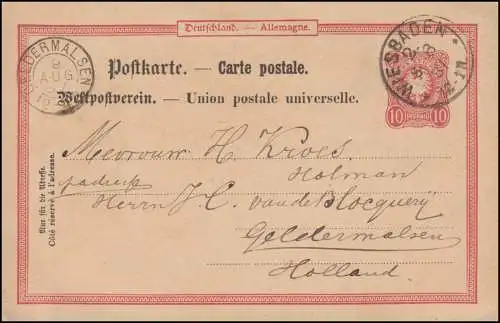 Deutschland. — Allemagne.
GELDERMALSEN
8
AUG
WIESBADEN
Postkarte. — Carte postale.
Weltpostverein. — Union postale universelle.
10 PFENNIG 10
Nur für die Adresse.
Côté réservé à l'adresse.
Mevrouw H. Kroes
Holman
p/adresse
Herrn J. C. van de Blocquerij
Geldermalsen
Holland.